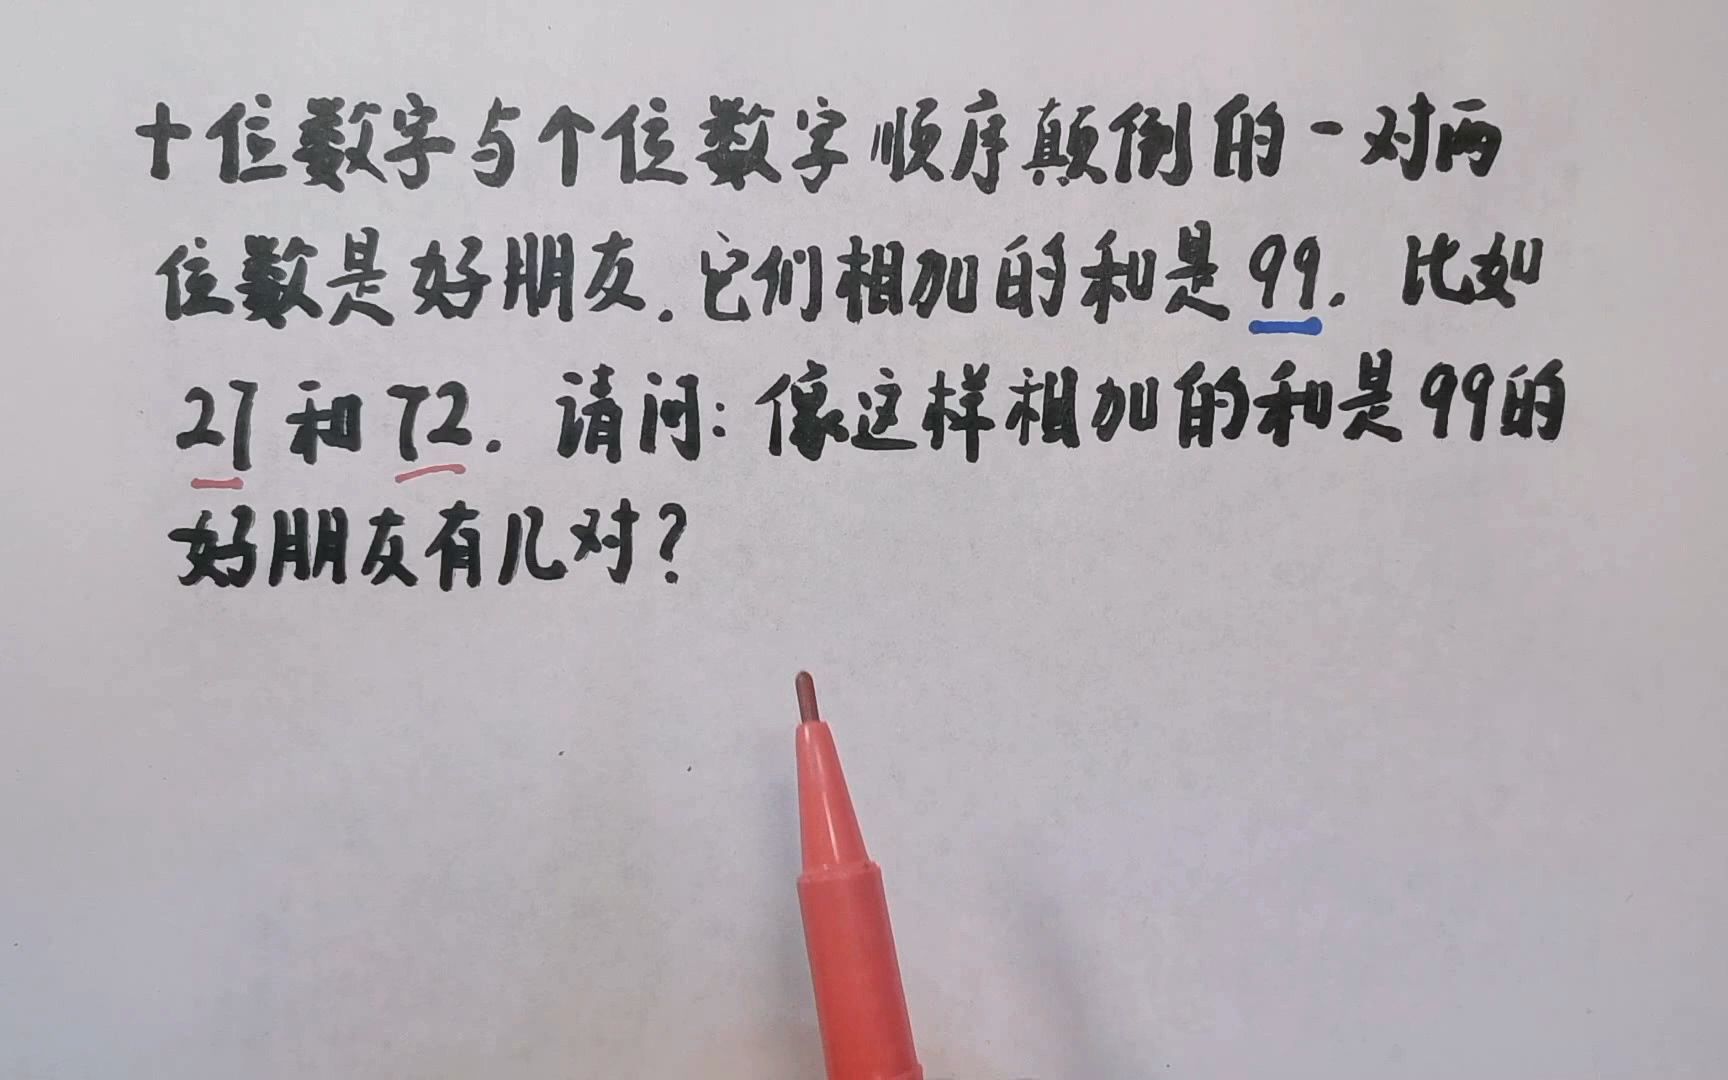 十位数字与个位数字顺序颠倒的一对两
位数是好朋友.它们相加的和是99.比如
27和72.请问:像这样相加的和是99的
好朋友有几对?